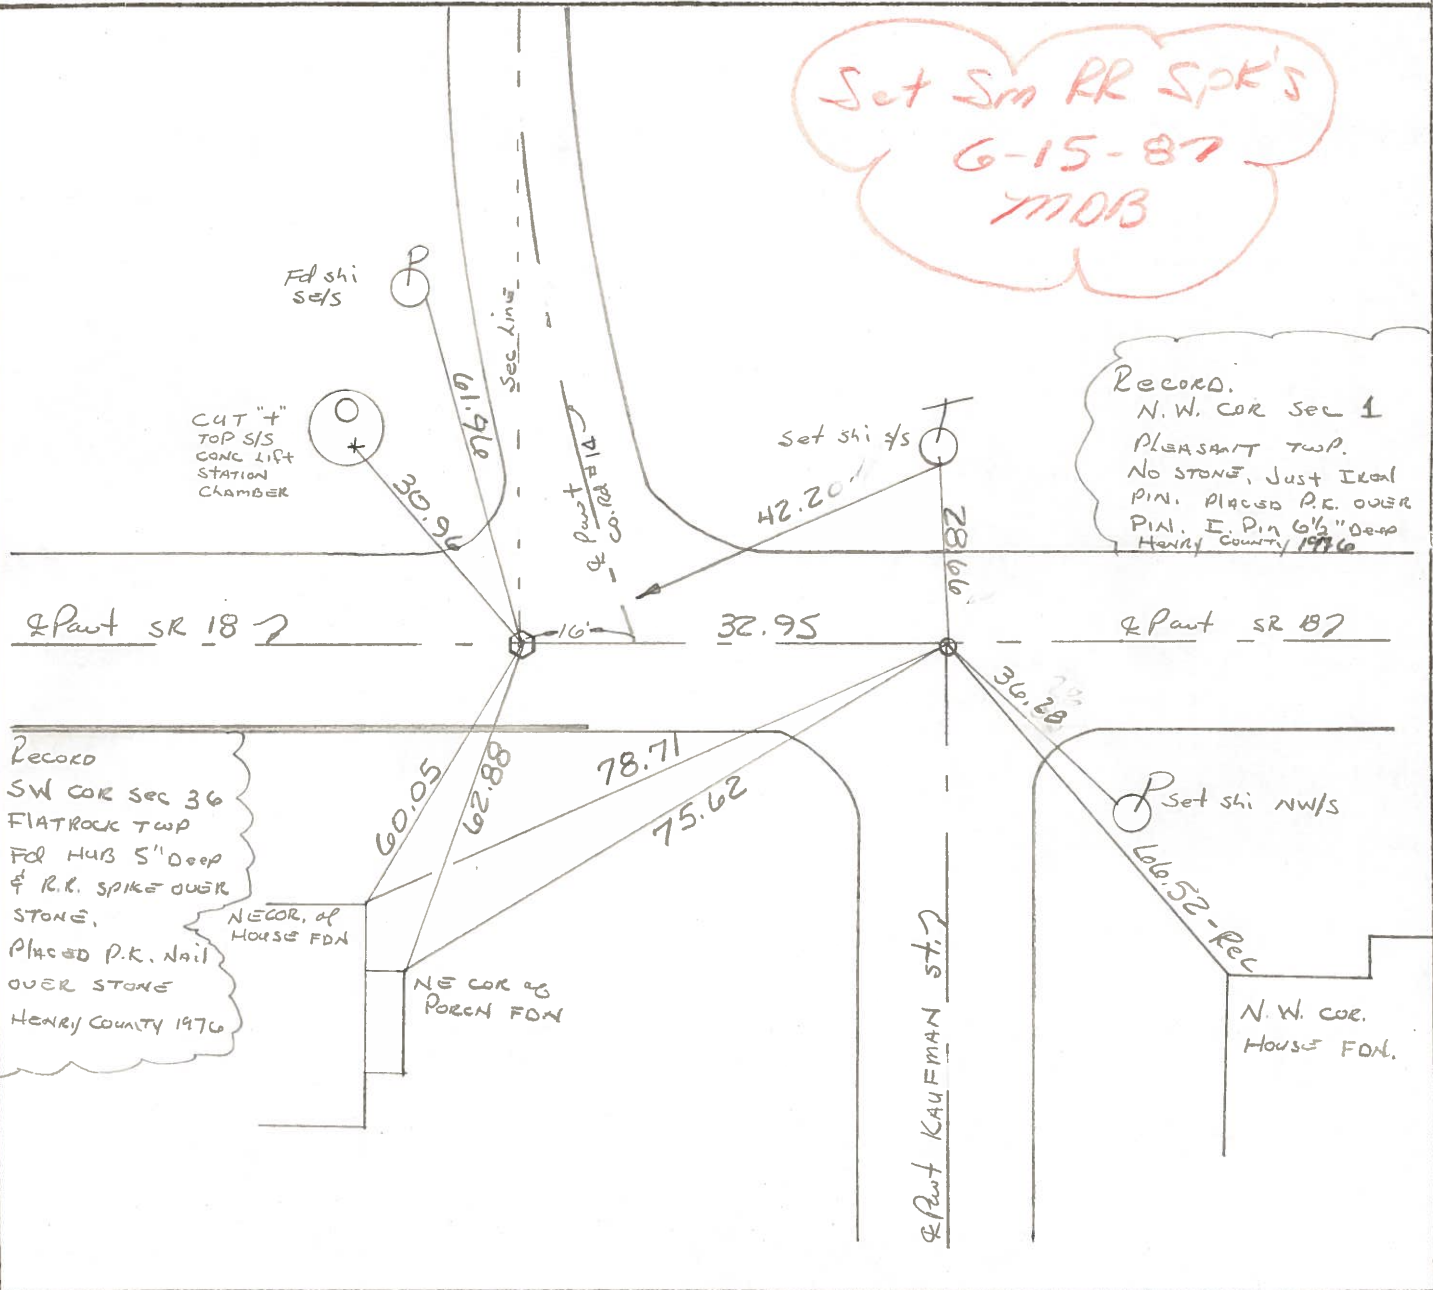 Set Sm RR Spk's
6-15-87
MDB
Fd shi
SE/S
P
61.96
Sec Line
CUT "+"
TOP S/S
CONC Lift
STATION
CHAMBER
30.96
℄ Pavt
Co. Rd #14
Set shi S/S
42.20
RECORD.
N.W. COR Sec 1
PLEASANT TWP.
NO STONE, Just IRON
PIN. PLACED P.K. OVER
PIN. I. Pin 6½" Deep
HENRY COUNTY 1976
℄ Pavt SR 18
16'
32.95
℄ Pavt SR 18
36.28
RECORD
SW COR Sec 36
FLATROCK TWP
Fd HUB 5" Deep
& R.R. SPIKE OVER
STONE.
PLACED P.K. Nail
OVER STONE
HENRY COUNTY 1976
60.05
62.88
78.71
75.62
P
Set shi NW/S
66.52-Rec
NE COR. of
HOUSE FDN
NE COR of
PORCH FDN
℄ Pavt KAUFMAN St.
N.W. COR.
HOUSE FDN.